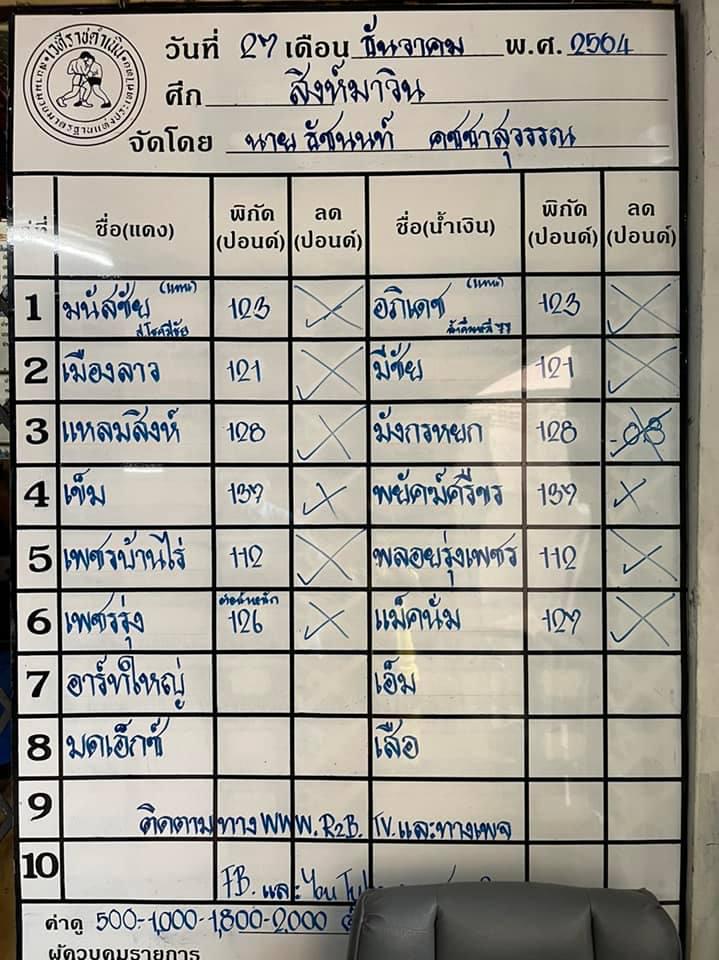 เวทีราชดำเนิน
วันที่ 27 เดือน ธันวาคม พ.ศ. 2564
ศึก สิงห์มาวิน
จัดโดย นาย ธัชนนท์ คชชาสุวรรณ
คู่ที่ ชื่อ(แดง) พิกัด (ปอนด์) ลด (ปอนด์) ชื่อ(น้ำเงิน) พิกัด (ปอนด์) ลด (ปอนด์)
1 มนัสชัย (แทน) ส.โชคมีชัย 123 อภิเดช (แทน) 123
2 เมืองลาว 121 มีชัย 121
3 แหลมสิงห์ 128 มังกรหยก 128 -0.8
4 เข็ม 137 พยัคฆ์ศรีชร 137
5 เพชรบ้านไร่ 112 พลอยรุ่งเพชร 112
6 เพชรรุ่ง ต่อน้ำหนัก 126 แม็คนั่ม 127
7 อาร์ทใหญ่ เอ็ม
8 มดเอ็กซ์ เสือ
9 ติดตามทาง WWW. R2B. TV. และทางเพจ
10 FB. และ
ค่าดู 500-1,000-1,800-2,000
ผู้ควบคุมรายการ